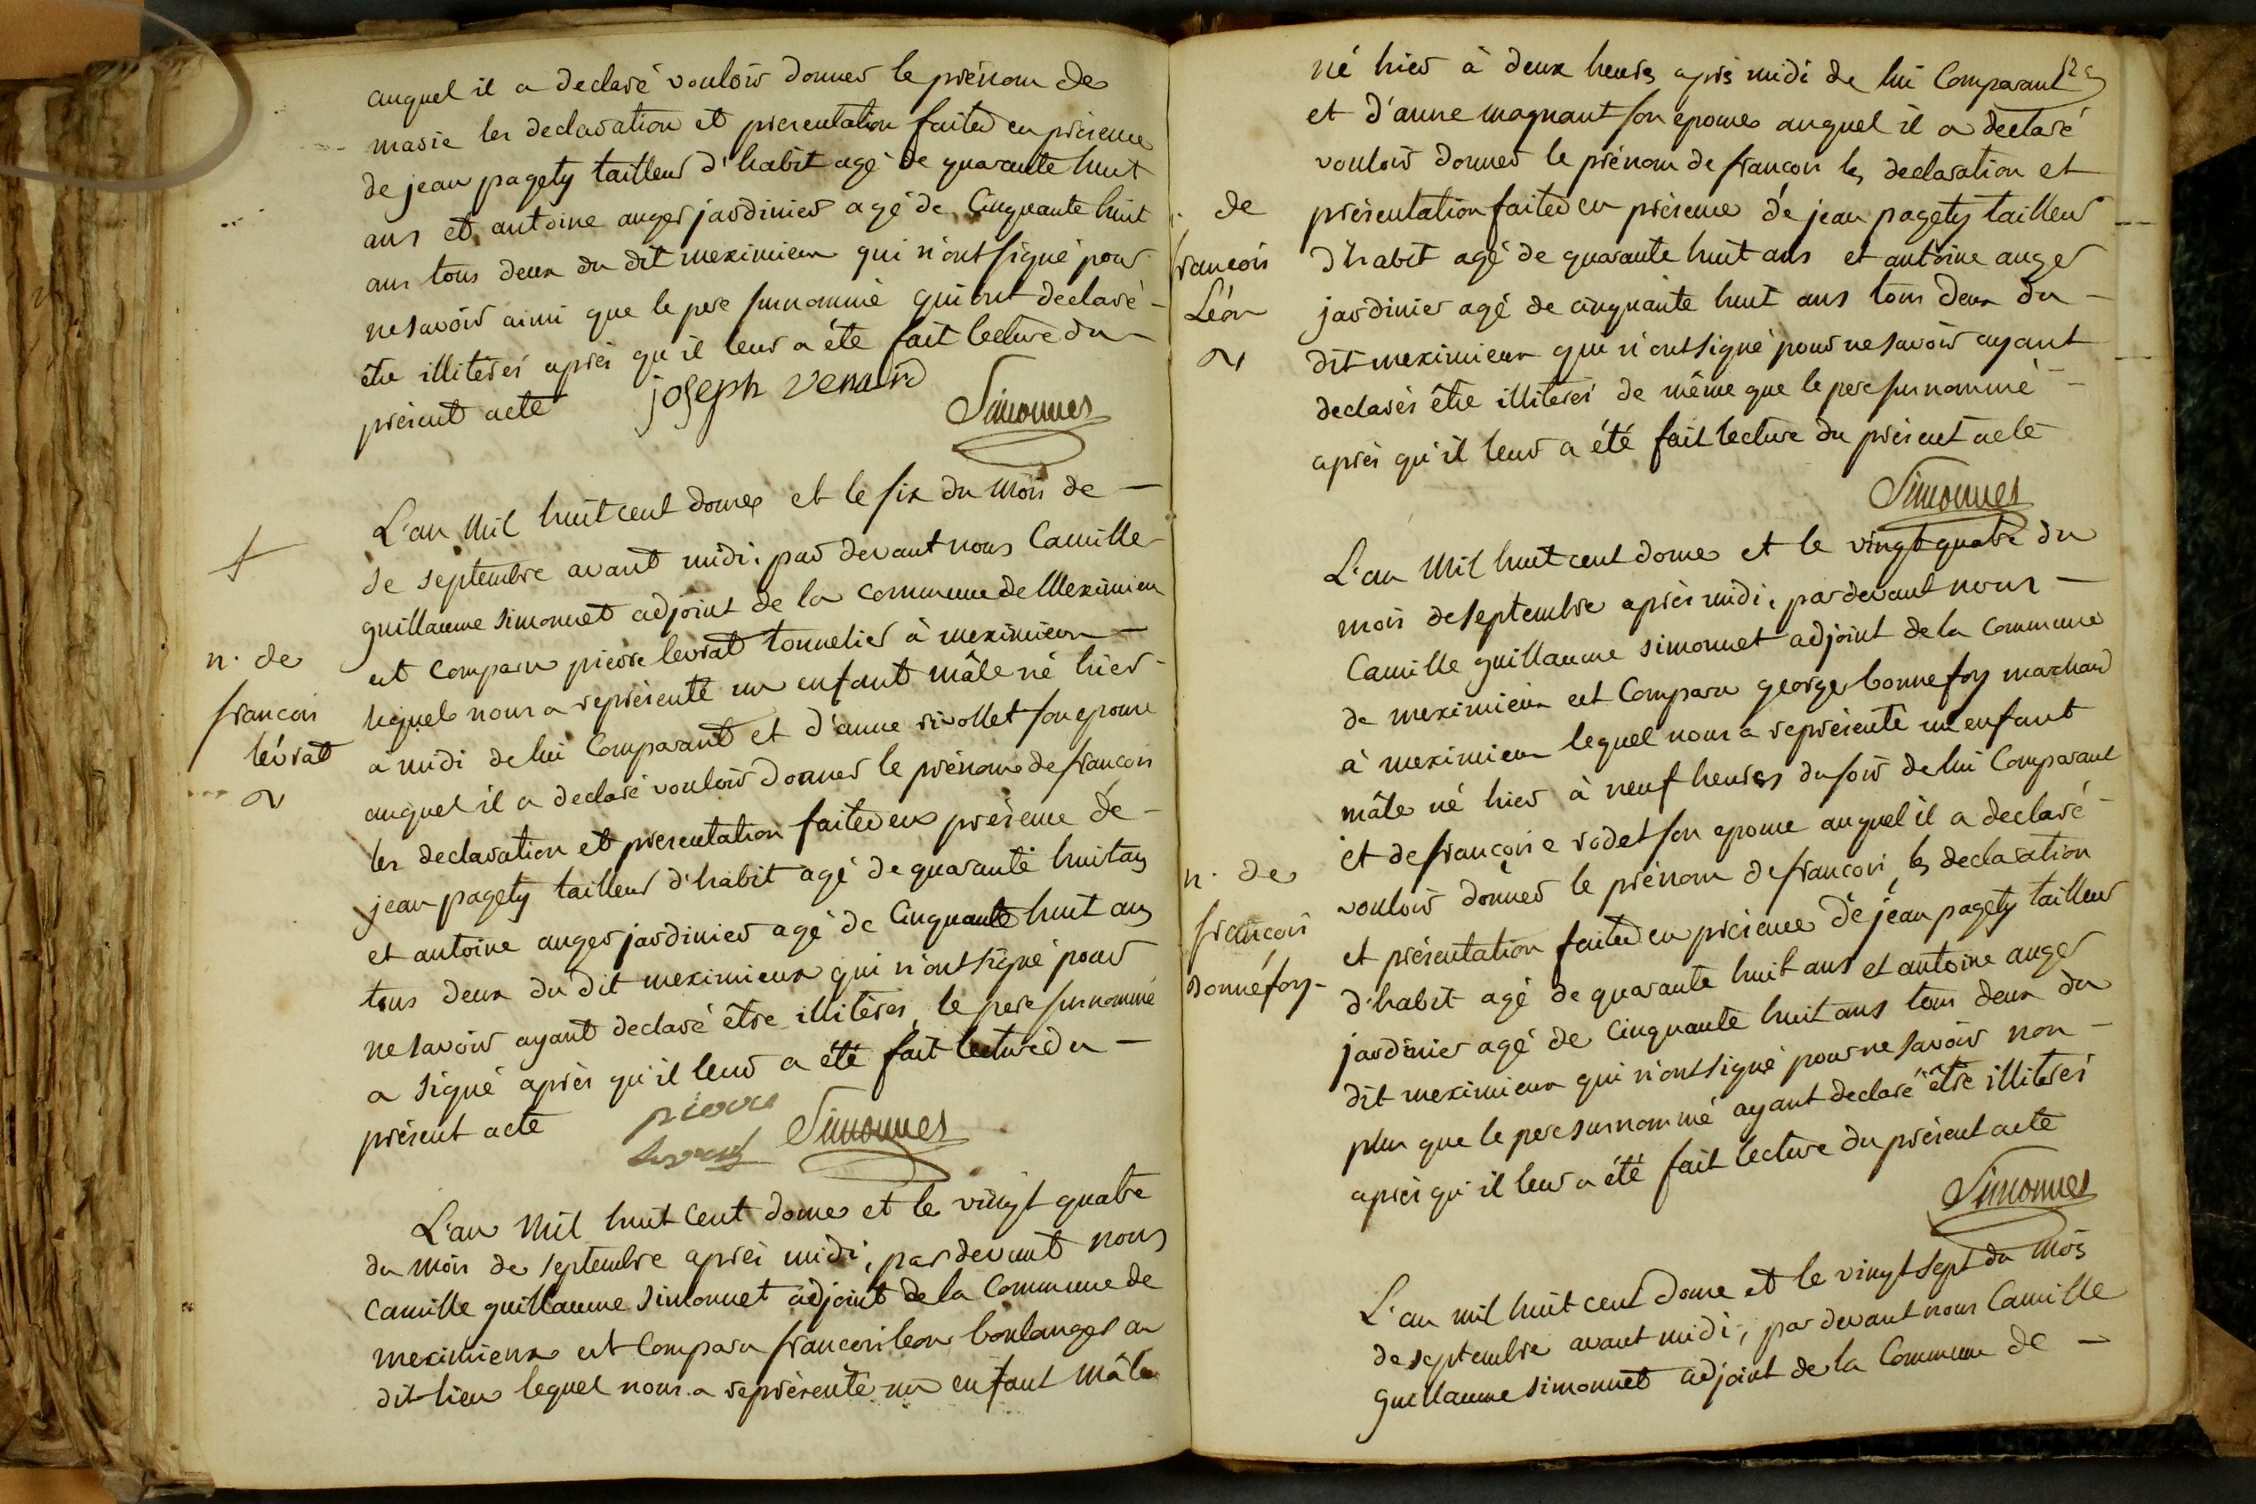 auquel il a declaré vouloir donner le prénom de
marie les declaration et presentation faites en présence
de jean pagety tailleur d'habit agé de quarante huit
ans et antoine auger jardinier agé de Cinquante huit
ans tous deux du dit meximieux qui n'ont signé pour
ne savoir ainsi que le pere surnommé qui ont declaré
être illitérés après qu'il leur a été fait lecture du
présent acte
joseph venard
Simonnet
L'an Mil huit cent douze et le six du Mois de
de septembre avant midi. par devant nous Camille
guillaume simonnet adjoint de la commune de Meximieux
est comparu pierre levrat tonnelier à meximieux
n. de
lequel nous a représenté un enfant mâle né hier
francois
à midi de lui Comparant et d'anne rivollet son epouse
lévrat
auquel il a declaré vouloir donner le prénom de francois
les declaration et presentation faites en présence de
jean pagety tailleur d'habit agé de quarante huit ans
et antoine auger jardinier agé de Cinquante huit ans
tous deux du dit meximieux qui n'ont signé pour
ne savoir ayant declaré être illitérés, le pere surnommé
a signé après qu'il leur a été fait lecture du
présent acte
pierre
levrat
Simonnet
L'an Mil huit Cent douze et le vingt quatre
du Mois de septembre après midi, par devant nous
Camille guillaume simonnet adjoint de la Commune de
meximieux est Comparu francois leon boulanger au
dit lieu lequel nous a représenté un enfant Mâle
né hier à deux heures après midi de lui Comparant
et d'anne magnant son épouse auquel il a declaré
vouloir donner le prénom de francois les declaration et
de
présentation faites en présence de jean pagety tailleur
francois
d'habit agé de quarante huit ans et antoine auger
Léon
jardinier agé de cinquante huit ans tous deux du
dit meximieux qui n'ont signé pour ne savoir ayant
declarés être illiterés de même que le pere surnommé
après qu'il leur a été fait lecture du présent acte
Simonnet
L'an Mil huit cent douze et le vingt quatre du
mois de septembre après midi, par devant nous
Camille guillaume simonnet adjoint de la commune
de meximieux est Comparu george bonnefoy marchand
à meximieux lequel nous a représenté un enfant
mâle né hier à neuf heures du soir de lui Comparant
et de françoise rodet son epouse auquel il a declaré
n. de
vouloir donner le prénom de francois, les declaration
francois
et présentation faites en présence de jean pagety tailleur
Bonnéfoy
d'habit agé de quarante huit ans et antoine auger
jardinier agé de Cinquante huit ans tous deux du
dit meximieux qui n'ont signé pour ne savoir non
plus que le pere surnommé ayant declaré être illiterés
après qu'il leur a été fait lecture du présent acte
Simonnet
L'an mil huit cent douze et le vingt sept du Mois
de septembre avant midi, par devant nous Camille
Guillaume simonnet adjoint de la Commune de